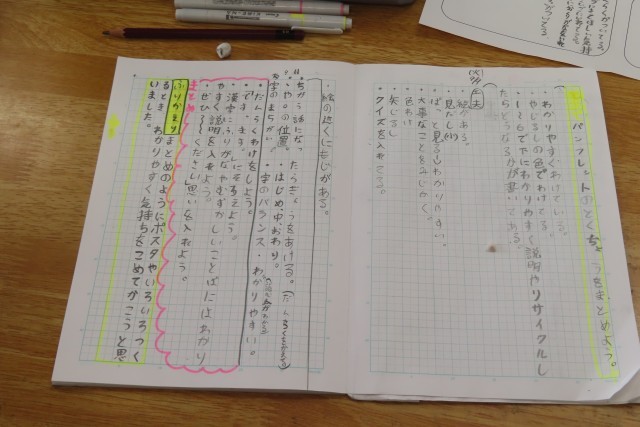 パンフレットのとくちょうをまとめよう。
わかりやすくわけている。
やじるしの色でわけてる。
1〜6で下にわかりやすく説明やリサイクルし
たらどうなるかが書いてある。
工夫
絵がある。
見だしが
ぱっと見るとわかりやすい。
大事なことをみじかく。
色わけ
矢じるし
クイズを入れてる。
・絵の近くにもじがある。
ちがう話になったら
の位置。・はじめ・中・おわり。
字のまちがい・字のバランス・わかりやすい。
・だんらくわけをしよう。
・です、ます。にそろえよう。
・漢字にふりがなやむずかしいことばにはわかり
やすく説明を入れよう。
・ぜひ〜ください思いを入れよう。
まとめ
ふりかえり
まとめのようにポスタやいろいろつく
るとき、わかりやすく気持ちをこめてかこうと思
いました。